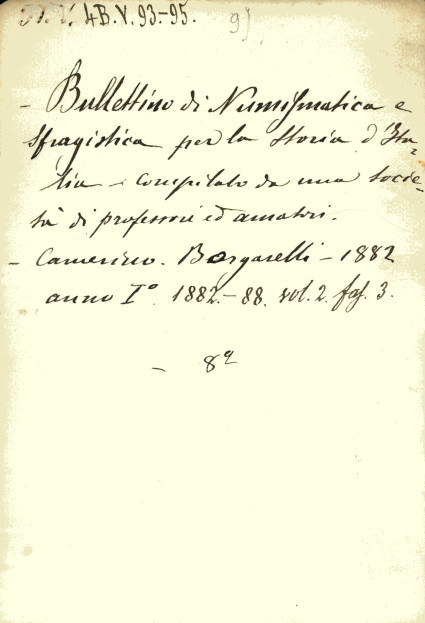 4B.V.93-95. 9)
- Bullettino di Numismatica e
sfragistica per la storia d'Ita=
lia - compilato da una socie=
tà di professori ed amatori.
- Camerino. Borgarelli - 1882
anno I° 1882.-88. vol. 2. fas. 3.
- 8°